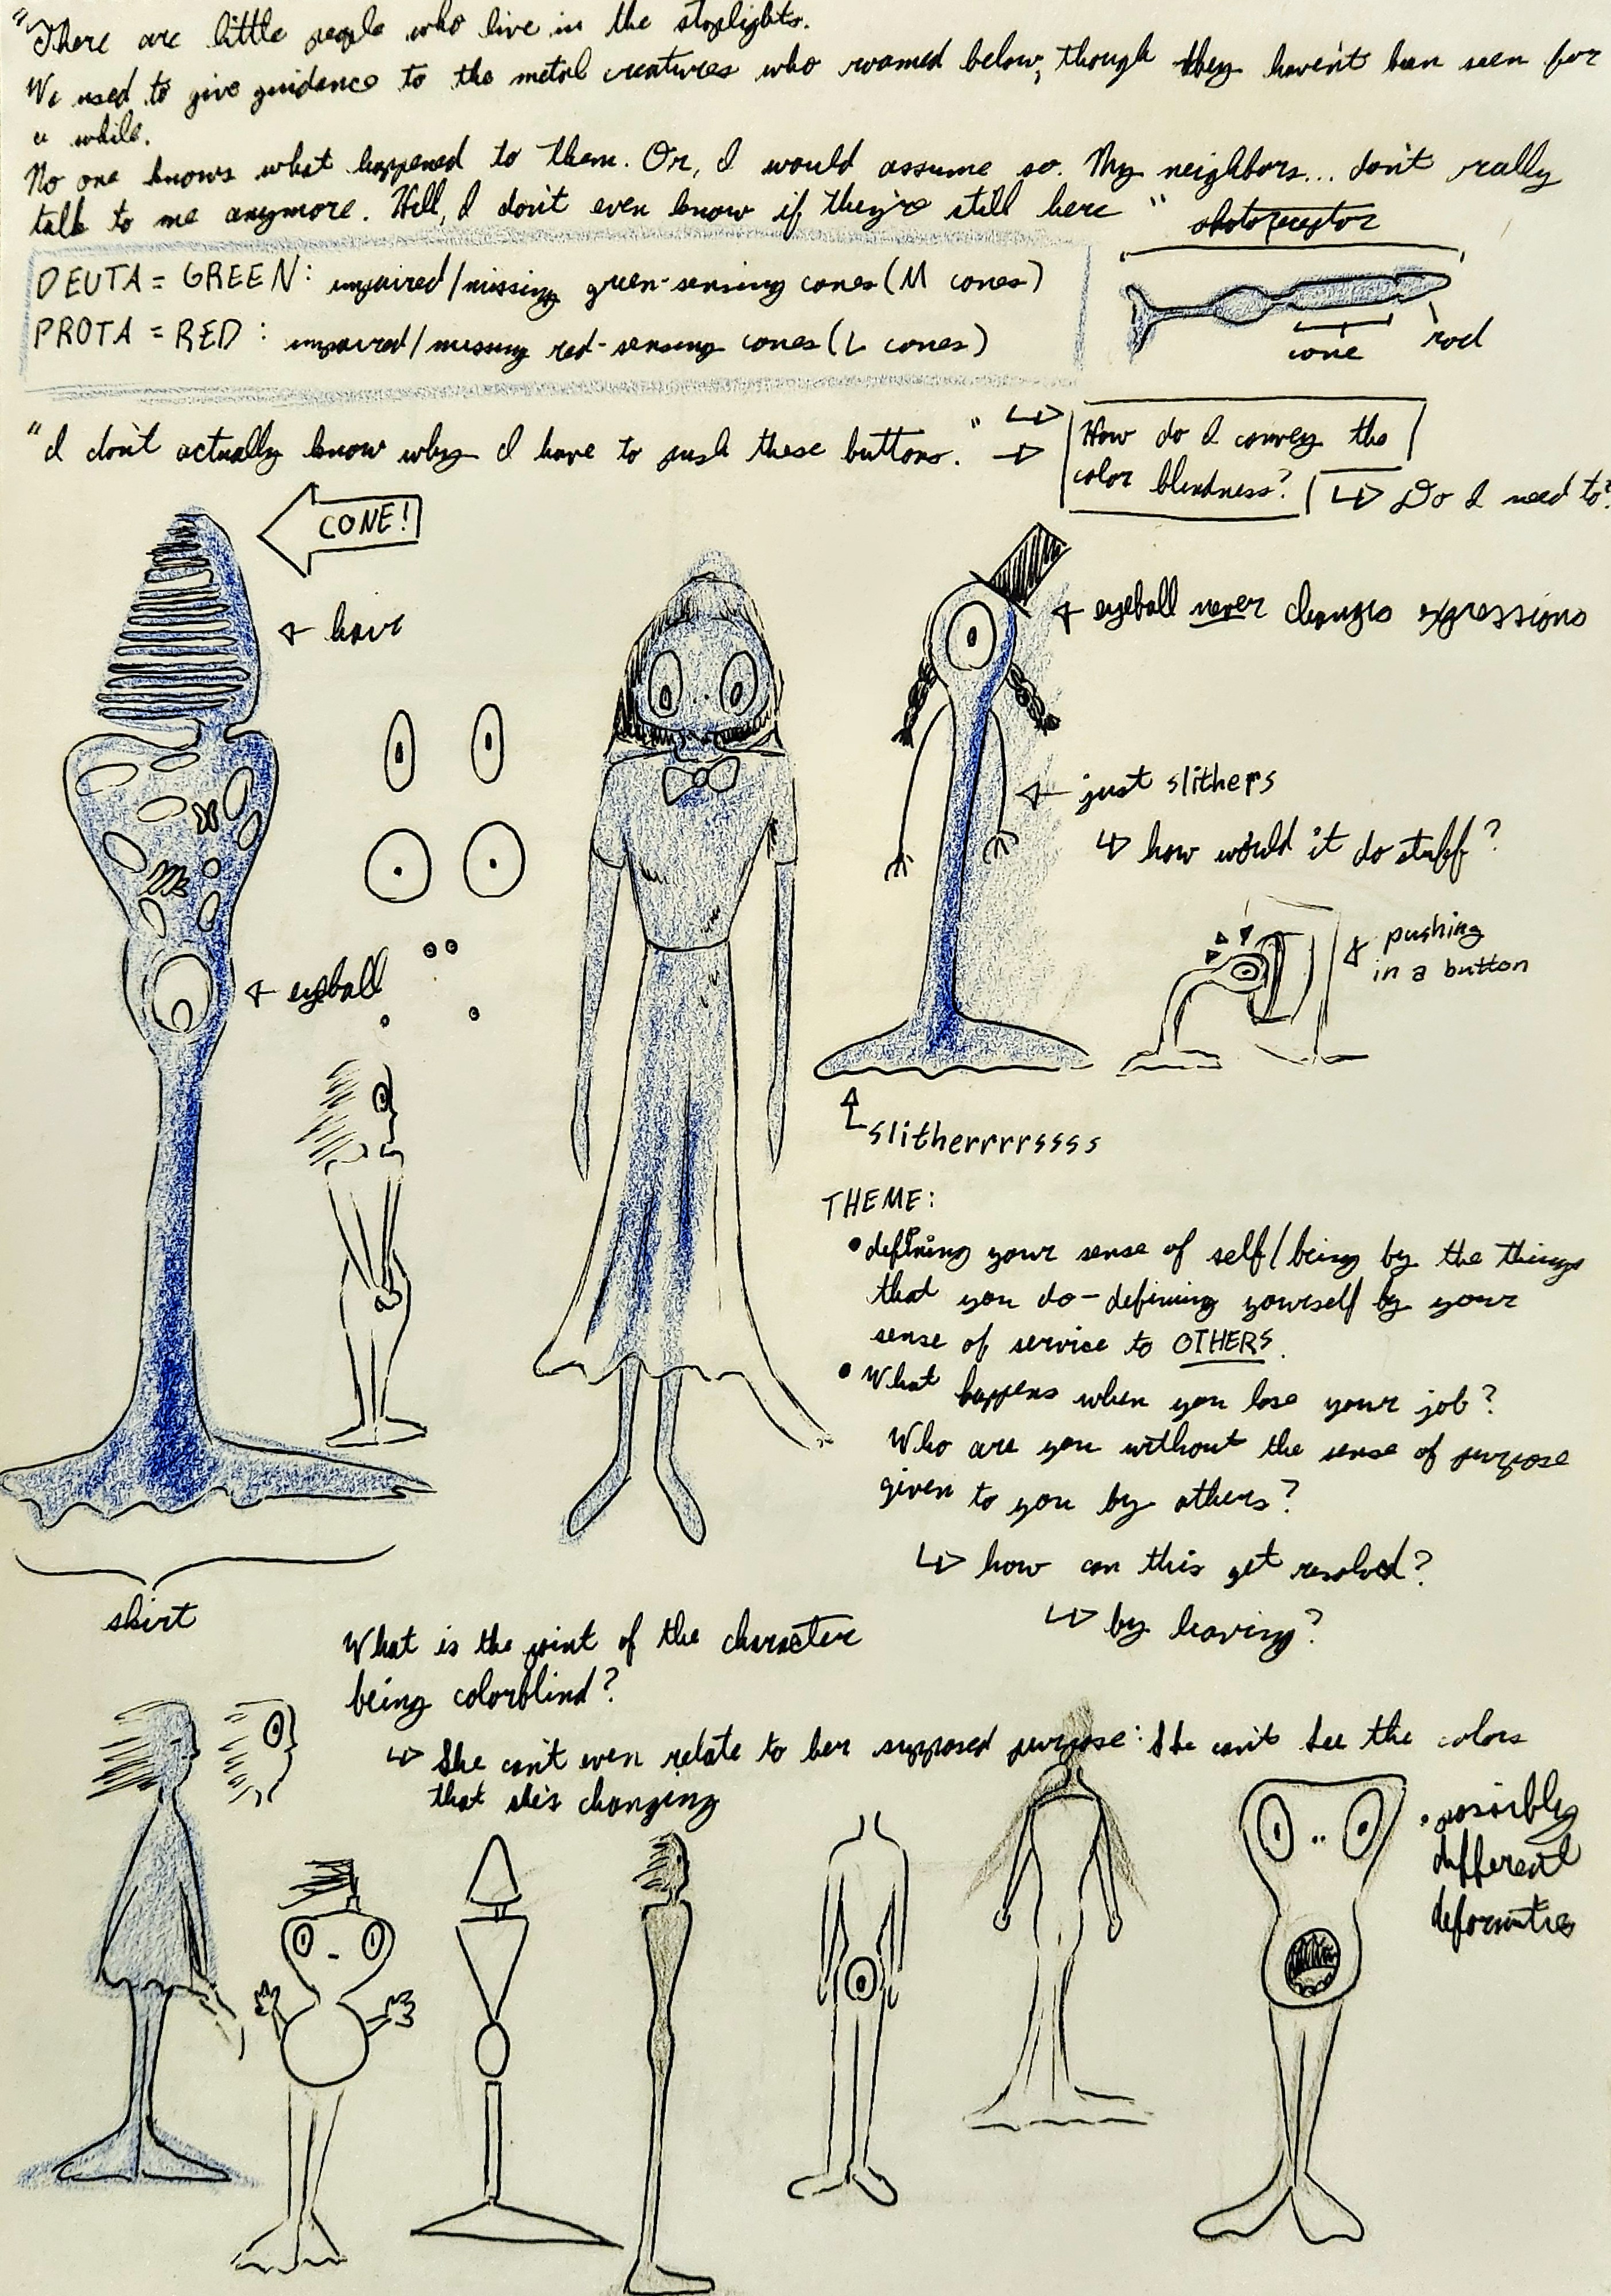 "There are little people who live in the stoplights.
We used to give guidance to the metal creatures who roamed below, though they haven't been seen for
a while.
No one knows what happened to them. Or, I would assume so. My neighbors... don't really
talk to me anymore. Hell, I don't even know if they're still here "
photoreceptor
DEUTA = GREEN: impaired/missing green-sensing cones (M cones)
PROTA = RED: impaired/missing red-sensing cones (L cones)
cone
rod
"I don't actually know why I have to push these buttons."
↳ → How do I convey the
color blindness?
↳ Do I need to?
CONE!
← hair
← eyeball never changes expressions
← just slithers
↳ how would it do stuff?
← pushing
in a button
← eyeball
slitherrrrssss
THEME:
• defining your sense of self/being by the things
that you do - defining yourself by your
sense of service to OTHERS.
• What happens when you lose your job?
Who are you without the sense of purpose
given to you by others?
↳ how can this get resolved?
↳ by leaving?
skirt
What is the point of the character
being colorblind?
↳ She can't even relate to her supposed purpose: She can't see the colors
that she's changing
• possibly
different
deformities